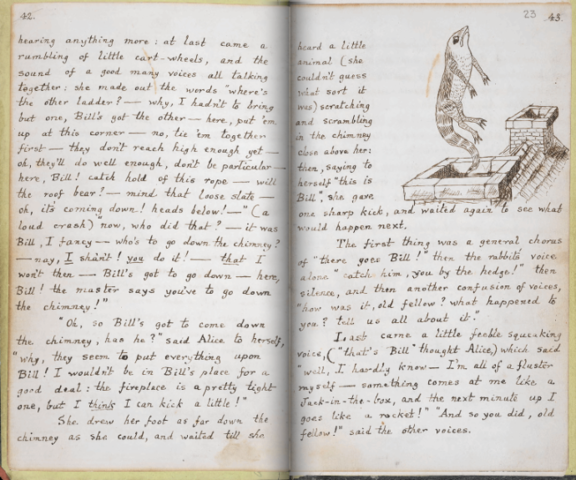 42.
hearing anything more: at last came a
rumbling of little cart-wheels, and the
sound of a good many voices all talking
together: she made out the words "where's
the other ladder? — why, I hadn't to bring
but one, Bill's got the other — here, put 'em
up at this corner — no, tie 'em together
first — they don't reach high enough yet —
oh, they'll do well enough, don't be particular —
here, Bill! catch hold of this rope — will
the roof bear? — mind that loose slate —
oh, it's coming down! heads below! —" (a
loud crash) "now, who did that? — it was
Bill, I fancy — who's to go down the chimney?
— nay, I shan't! you do it! — that I
won't then — Bill's got to go down — here,
Bill! the master says you've to go down
the chimney!"
"Oh, so Bill's got to come down
the chimney, has he?" said Alice to herself,
"why, they seem to put everything upon
Bill! I wouldn't be in Bill's place for a
good deal: the fireplace is a pretty tight
one, but I think I can kick a little!"
She drew her foot as far down the
chimney as she could, and waited till she
23 43.
heard a little
animal (she
couldn't guess
what sort it
was) scratching
and scrambling
in the chimney
close above her:
then, saying to
herself "this is
Bill", she gave
one sharp kick, and waited again to see what
would happen next.
The first thing was a general chorus
of "there goes Bill!" then the rabbit's voice
alone "catch him, you by the hedge!" then
silence, and then another confusion of voices,
"how was it, old fellow? what happened to
you? tell us all about it."
Last came a little feeble squeaking
voice, ("that's Bill" thought Alice,) which said
"well, I hardly know — I'm all of a fluster
myself — something comes at me like a
Jack-in-the-box, and the next minute up I
goes like a rocket!" "And so you did, old
fellow!" said the other voices.